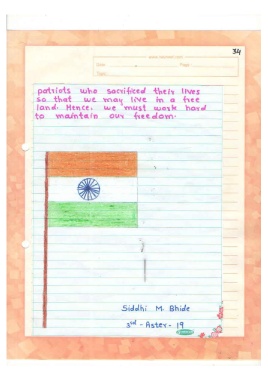 34
patriots who sacrificed their lives
so that we may live in a free
land. Hence, we must work hard
to maintain our freedom.
Siddhi M. Bhide
3rd - Aster - 19